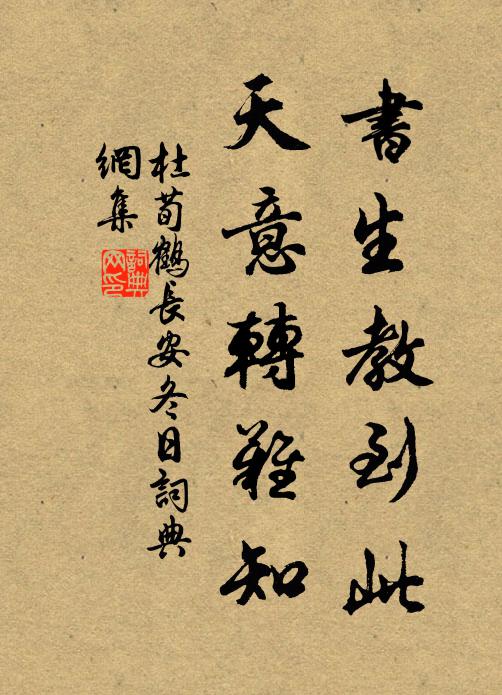 書生教到此
天意轉難知
杜荀鶴長安冬日詞典
網集
詞典
网印